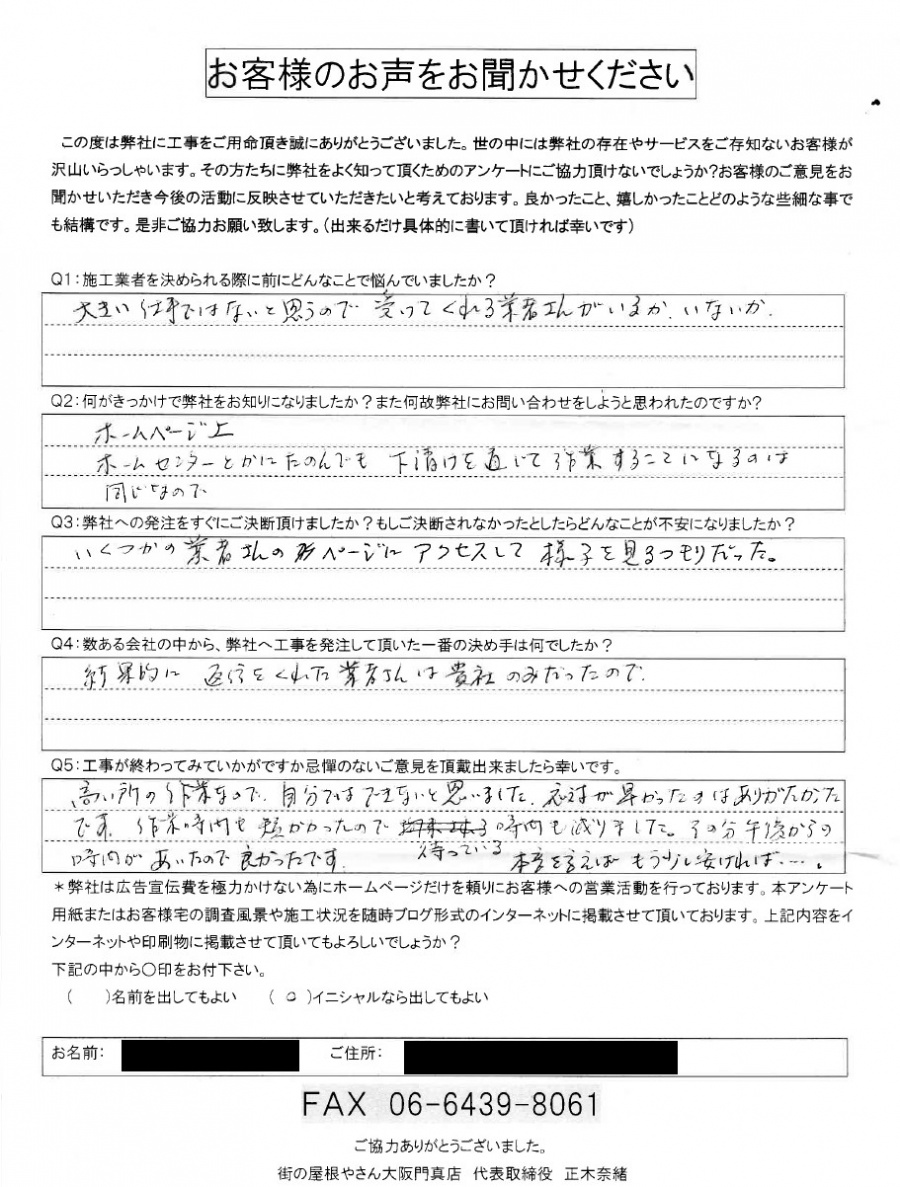 お客様のお声をお聞かせください
この度は弊社に工事をご用命頂き誠にありがとうございました。世の中には弊社の存在やサービスをご存知ないお客様が
沢山いらっしゃいます。その方たちに弊社をよく知って頂くためのアンケートにご協力頂けないでしょうか?お客様のご意見をお
聞かせいただき今後の活動に反映させていただきたいと考えております。良かったこと、嬉しかったことどのような些細な事で
も結構です。是非ご協力お願い致します。(出来るだけ具体的に書いて頂ければ幸いです)
Q1:施工業者を決められる際に前にどんなことで悩んでいましたか?
大きい仕事ではないと思うので 受けてくれる業者さんがいるか、いないか.
Q2:何がきっかけで弊社をお知りになりましたか?また何故弊社にお問い合わせをしようと思われたのですか?
ホームページ上
ホームセンターとかにたのんでも 下請けを通じて作業することになるのは
同じなので
Q3:弊社への発注をすぐにご決断頂けましたか?もしご決断されなかったとしたらどんなことが不安になりましたか?
いくつかの業者さんのページに アクセスして 様子を見るつもりだった。
Q4:数ある会社の中から、弊社へ工事を発注して頂いた一番の決め手は何でしたか?
結果的に 返信をくれた業者さんは貴社のみだったので
Q5:工事が終わってみていかがですか忌憚のないご意見を頂戴出来ましたら幸いです。
高い所の作業なので、自分ではできないと思いました。が早かったのはありがたかった
です。作業時間も短かかったので 待っている 時間も減りました。その分午後からの
時間があいたので良かったです. 本音を言えば もう少し安ければ…。
*弊社は広告宣伝費を極力かけない為にホームページだけを頼りにお客様への営業活動を行っております。本アンケート
用紙またはお客様宅の調査風景や施工状況を随時ブログ形式のインターネットに掲載させて頂いております。上記内容をイ
ンターネットや印刷物に掲載させて頂いてもよろしいでしょうか?
下記の中から〇印をお付下さい。
( )名前を出してもよい (○)イニシャルなら出してもよい
お名前: ご住所:
FAX 06-6439-8061
ご協力ありがとうございました。
街の屋根やさん大阪門真店 代表取締役 正木奈緒